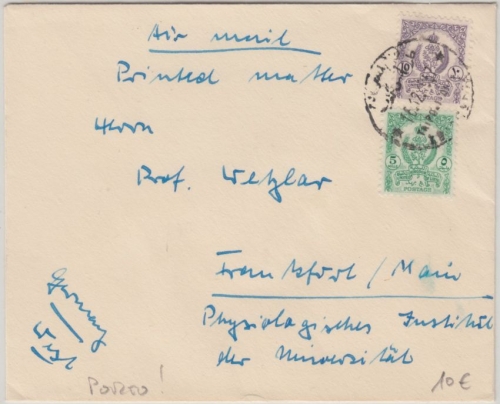 Air mail
Printed matter
Herrn
Prof. Wetzlar
Frankfurt/Main
Physiologisches Institut
der Universität
Germany
West
Porto!
10€
5 ٥
POSTAGE